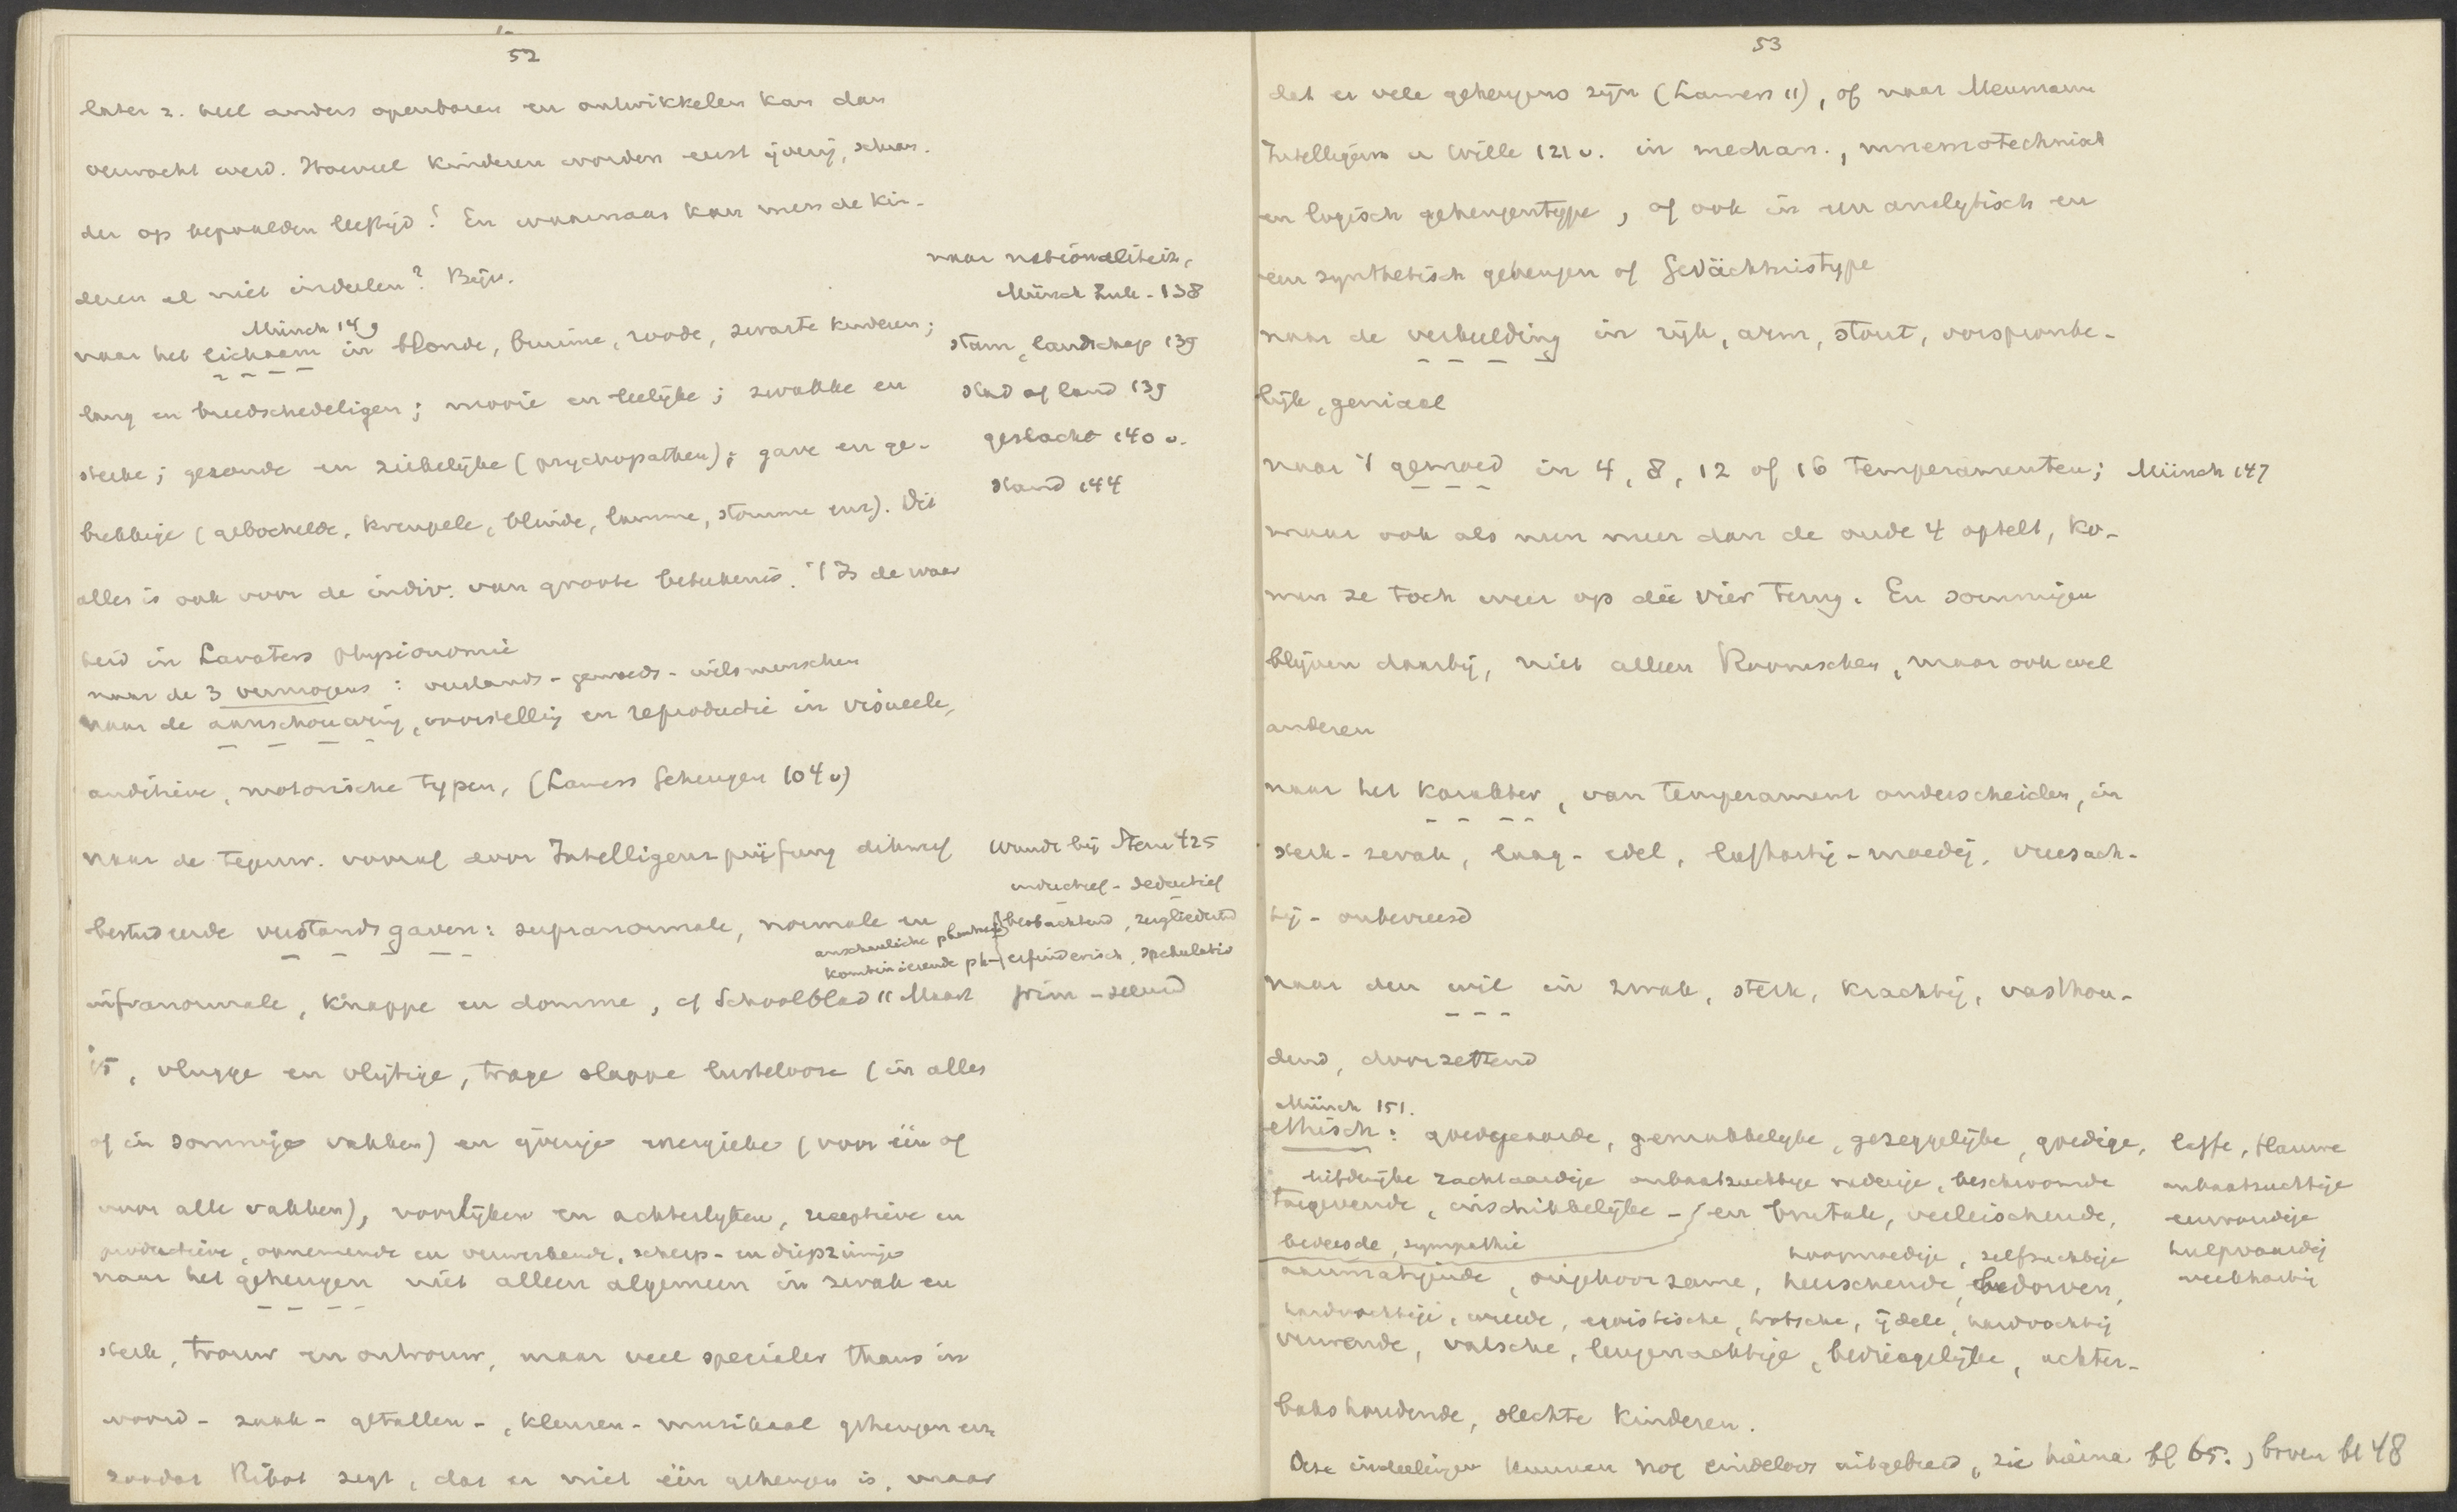 52
later z. heel anders openbaren en ontwikkelen kan dan
verwacht werd. Hoeveel kinderen worden eerst ijverig, schran-
der op bepaalden leeftijd! En waarnaar kan men de kin-
deren al niet indeelen? Bijv.
Münch 149
naar het lichaam in blonde, bruine, roode, zwarte kinderen;
lang en breedschedeligen; mooie en leelijke; zwakke en
sterke; gezonde en ziekelijke (psychopathen); gave en ge-
brekkige (gebochelde, kreupele, blinde, lamme, stomme enz). Dit
alles is ook voor de indiv. van groote beteekenis. 't Is de waar
heid in Lavaters physionomie
naar de 3 vermogens: verstands- gemoeds- wilsmenschen
naar de aanschouwing, voorstelling en reproductie in visueele,
auditieve, motorische typen, (Lamers Geheugen 104 v)
naar de tegenw. vooral door Intelligenzprüfung dikwijls
bestudeerde verstandsgaven: supranormale, normale en
infranormale, knappe en domme, cf Schoolblad 11 Maart
'15, vlugge en vlijtige, trage slappe lustelooze (in alles
of in sommige vakken) en ijverige energieke (voor één of
voor alle vakken), voorlijken en achterlijken, receptieve en
productieve, opnemende en verwerkende, scherp- en diepzinnige
naar het geheugen niet alleen algemeen in zwak en
sterk, trouw en ontrouw, maar veel specialer thans in
woord- zaak- getallen-, kleuren- muzikaal geheugen enz
zoodat Ribot zegt, dat er niet één geheugen is, maar
naar nationaliteit,
Münch Zuk- 138
stam, landschap 139
stad of land 139
geslacht 140 v.
stand 144
Wundt bij Stern 425
inductief - deductief
anschauliche phantasie beobachtend, zergliedernd
kombinierende ph- erfinderisch, spekulativ
prim - secund
53
dat er vele geheugens zijn (Lamers 11), of naar Meumann
Intelligenz u Wille 121 v. in mechan., mnemotechnisch
en logisch geheugentype, of ook in een analytisch en
een synthetisch geheugen of Gedächtnistype
naar de verbeelding in rijk, arm, stout, oorspronke-
lijk, geniaal
naar 't gemoed in 4, 8, 12 of 16 temperamenten; Münch 147
maar ook als men meer dan de oude 4 optelt, ko-
men ze toch weer op die vier terug. En sommigen
blijven daarbij, niet alleen Roomschen, maar ook wel
anderen
naar het karakter, van temperament onderscheiden, in
sterk-zwak, laag-edel, lafhartig-moedig, vreesach-
tig - onbevreesd
naar den wil in zwak, sterk, krachtig, vasthou-
dend, doorzettend
Münch 151.
ethisch: goedgeaarde, gemakkelijke, gezeggelijke, goedige,
liefderijke zachtaardige onbaatzuchtige nederige, beschroomde
toegevende, inschikkelijke - en brutale, veeleischende,
bevreesde, sympathie hoogmoedige, zelfzuchtige
aanmatigende, ongehoorzame, heerschende, bedorven,
hardvochtige, wreede, egoistische, trotsche, ijdele, hardvochtig
valsche, leugenachtige, bedriegelijke, achter-
bakshoudende, slechte kinderen.
laffe, flauwe
onbaatzuchtige
eenvoudige
hulpvaardig
weekhartig
Deze indeelingen kunnen nog eindeloos uitgebreid, zie hierna bl 65., boven bl 48